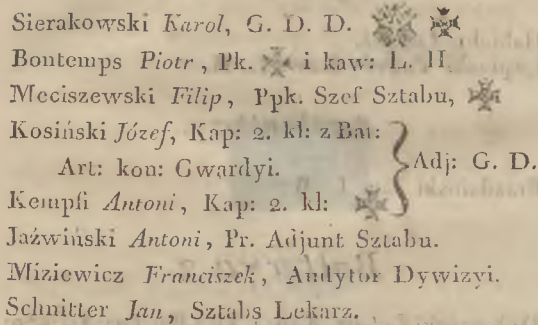 Sierakowski Karol, G. D. D.
Bontemps Piotr, Pk. i kaw: L. H.
Meciszewski Filip, Ppk. Szef Sztabu,
Kosiński Józef, Kap: 2. kl: z Bat:
Art: kon: Gwardyi. Adj: G. D.
Kempfi Antoni, Kap: 2. kl:
Jaźwiński Antoni, Pr. Adjunt Sztabu.
Miziewicz Franciszek, Audytor Dywizyi.
Schnitter Jan, Sztabs Lekarz.